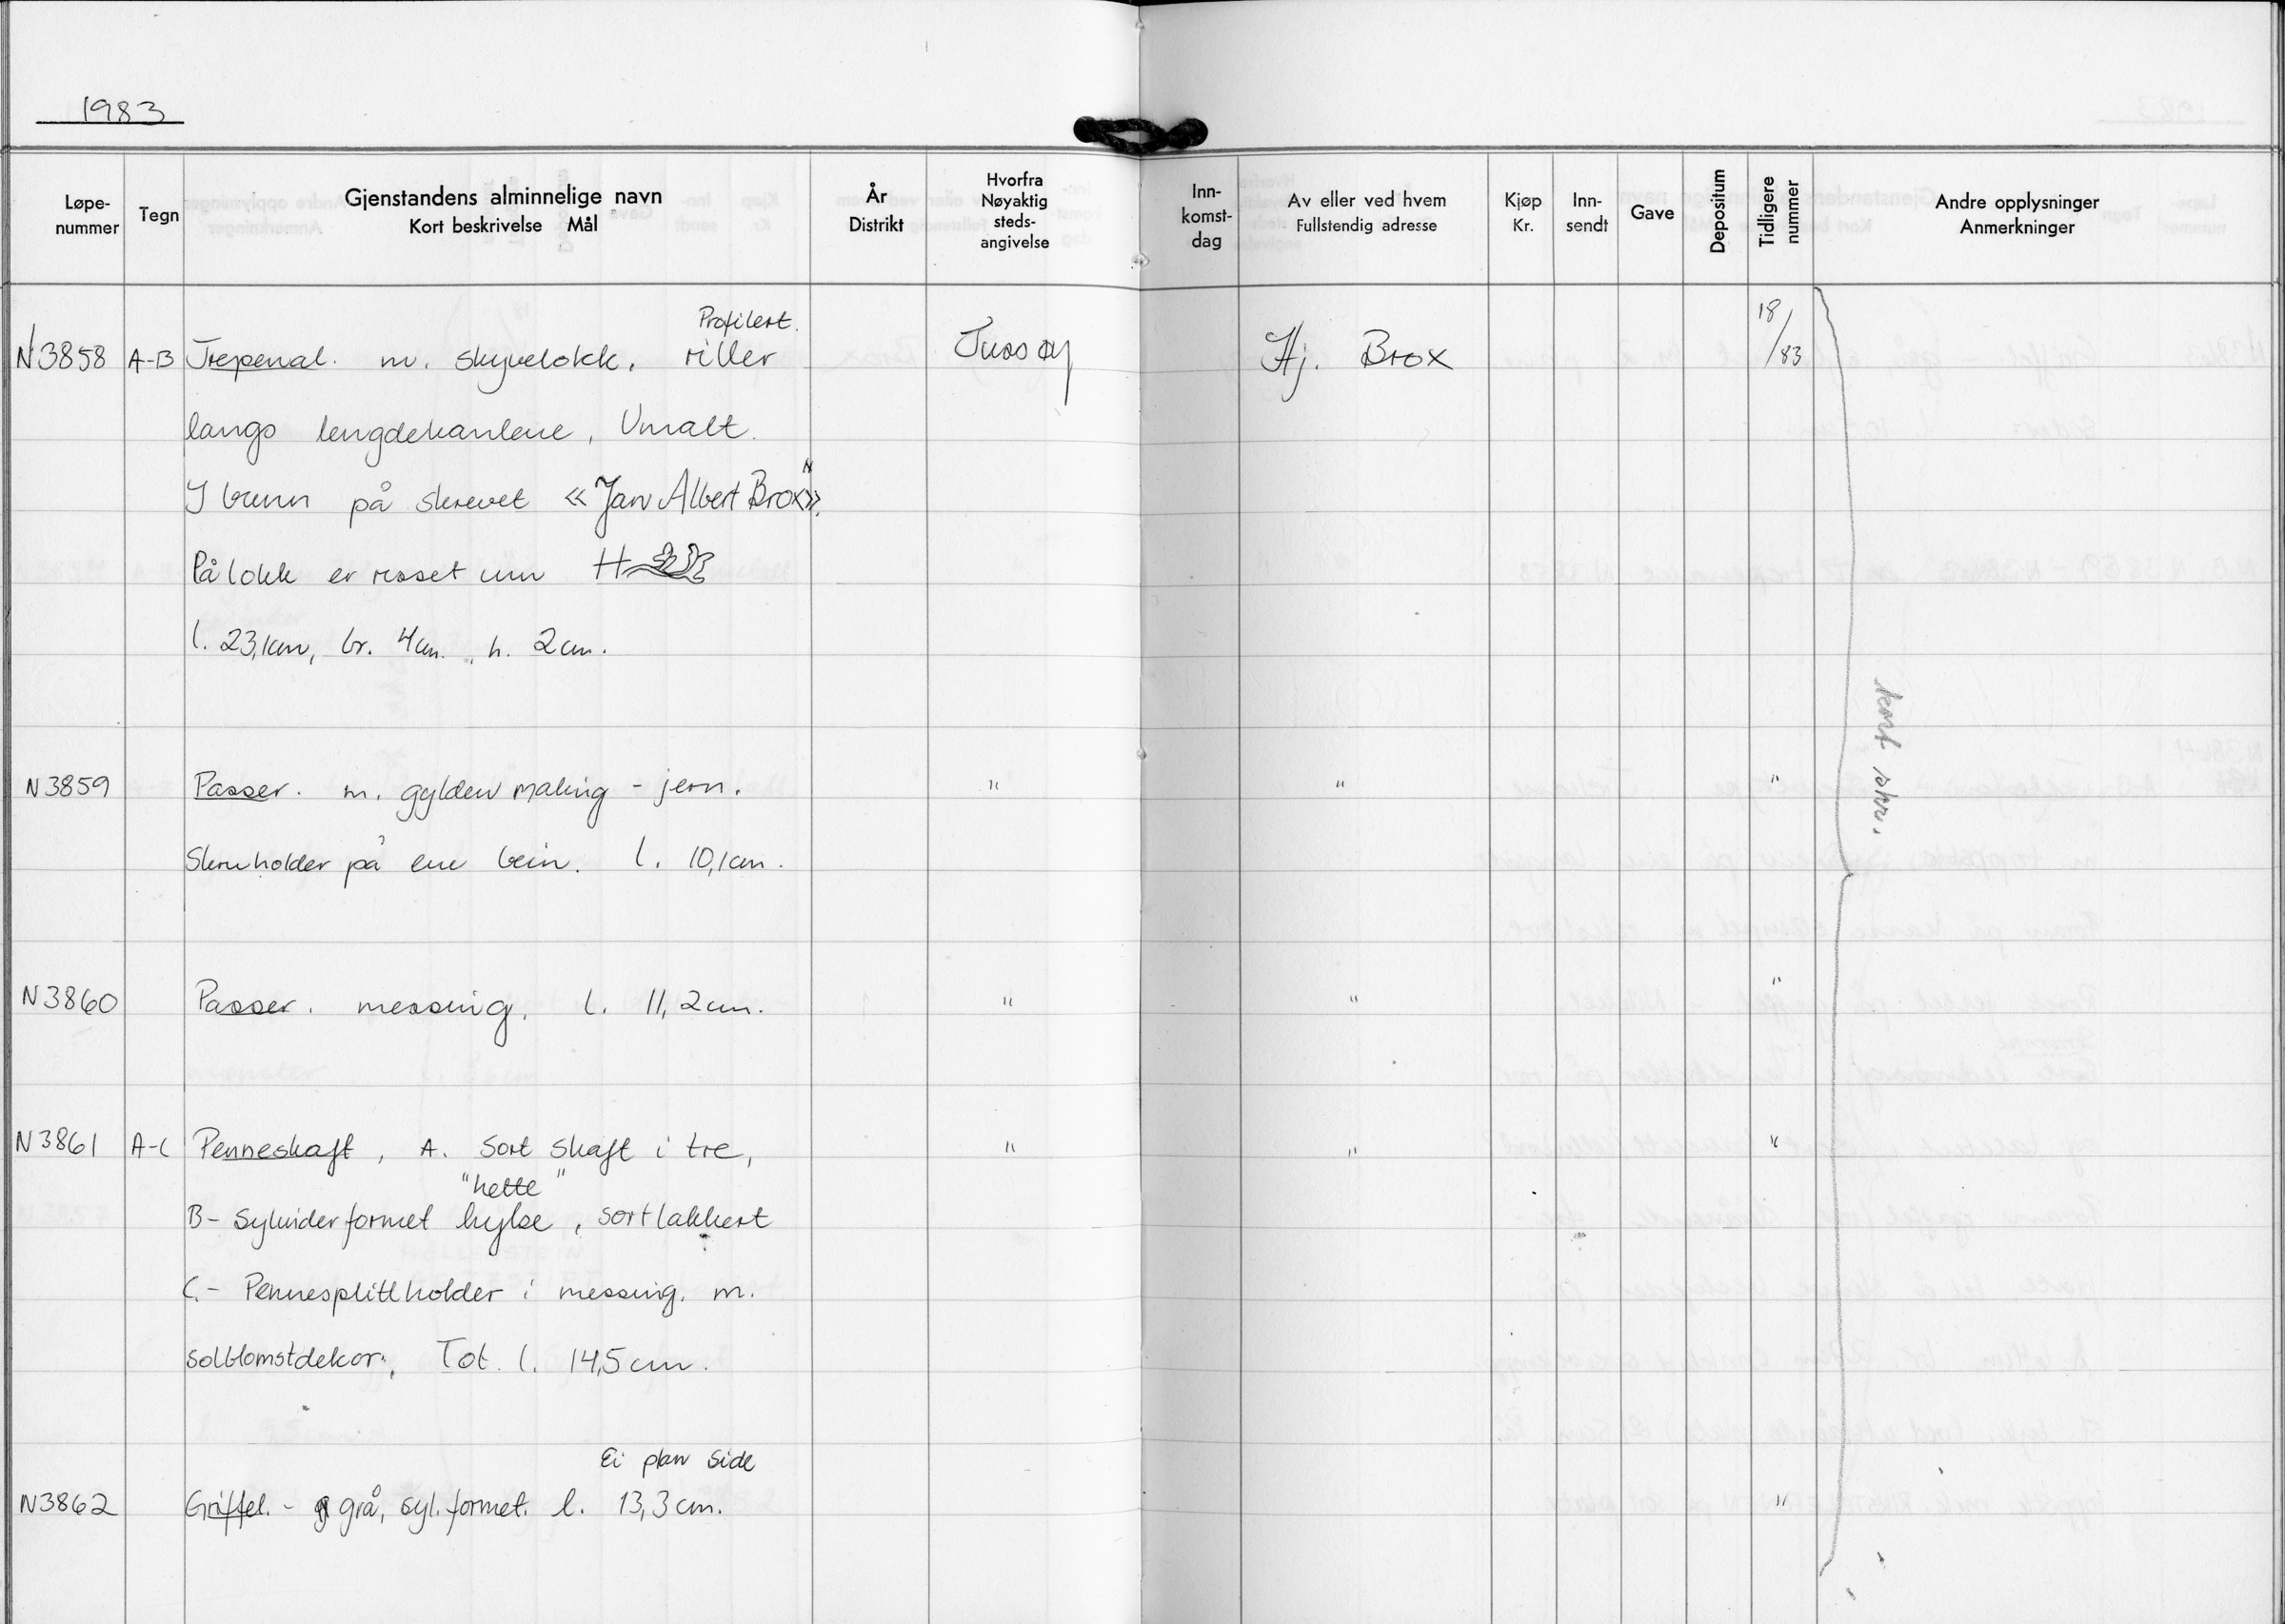 1983
Løpe-nummer Tegn Gjenstandens alminnelige navn Kort beskrivelse Mål År Distrikt Hvorfra Nøyaktig steds-angivelse Inn-komst-dag Av eller ved hvem Fullstendig adresse Kjøp Kr. Inn-sendt Gave Depositum Tidligere nummer Andre opplysninger Anmerkninger
Profilert.
N3858 A-B Trepenal. m. skyvelokk. riller Tussøy Hj. Brox 18/83
langs lengdekantene, Umalt.
I bunn på skrevet «Jan Albert Brox».
På lokk er risset inn H
l. 23,1cm, br. 4cm., h. 2cm.
kort skr.
N3859 Passer. m. gylden maling - jern. " " "
Skruholder på ene bein. l. 10,1cm.
N3860 Passer. messing. l. 11,2cm. " " "
N3861 A-C Penneskaft, A. Sort skaft i tre, " " "
"hette"
B- Sylinderformet hylse, sortlakkert
C.- Pennesplittholder i messing. m.
solblomstdekor, Tot. l. 14,5cm.
Ei plan side
N3862 Griffel. - grå, syl. formet. l. 13,3cm. "